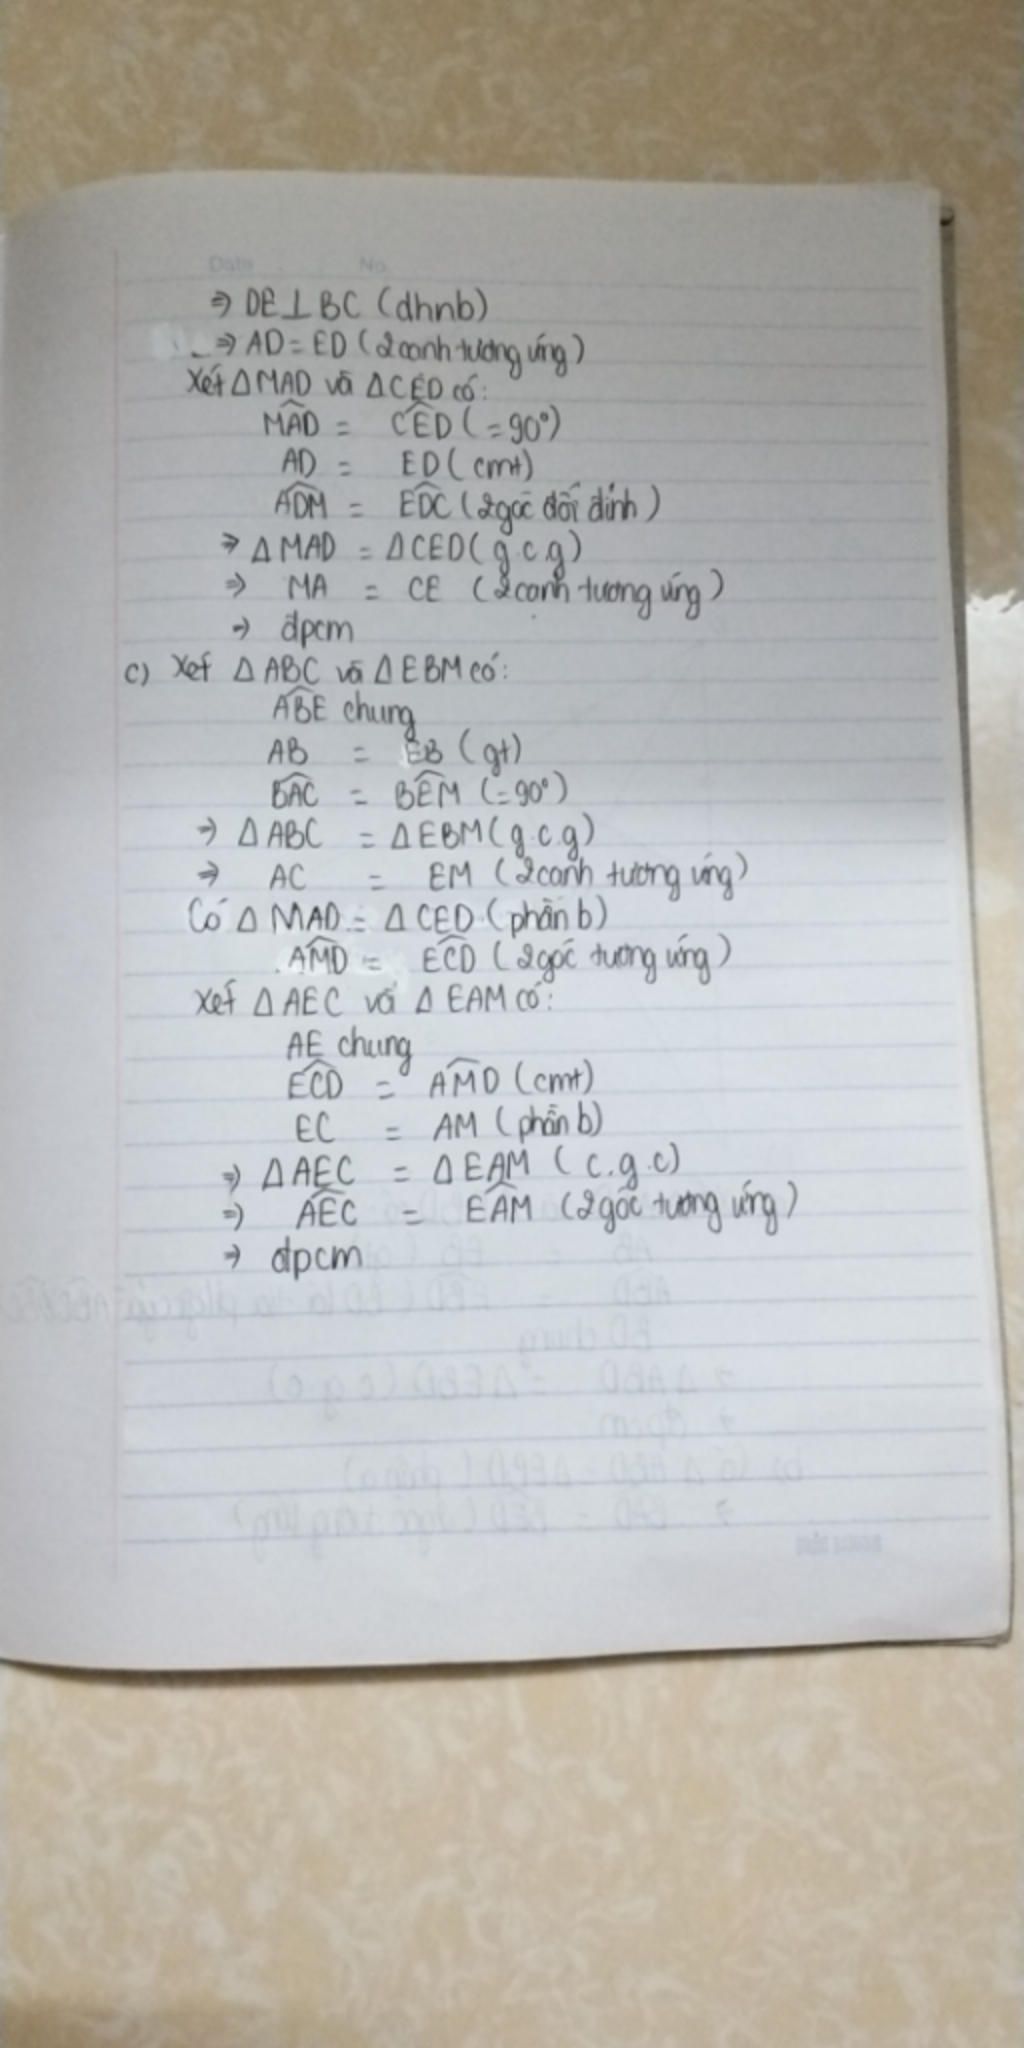 Date No
⇒ DE⊥BC (dhnb)
⇒ AD = ED (2 canh tương ứng)
Xét ΔMAD và ΔCED có:
M̂AD = ĈED (=90°)
AD = ED (cmt)
ÂDM = ÊDC (2 góc đối đỉnh)
⇒ ΔMAD = ΔCED (g.c.g)
⇒ MA = CE (2 canh tương ứng)
⇒ đpcm
c) Xét ΔABC và ΔEBM có:
ÂBE chung
AB = EB (gt)
B̂AC = B̂EM (=90°)
⇒ ΔABC = ΔEBM (g.c.g)
⇒ AC = EM (2 canh tương ứng)
Có ΔMAD = ΔCED (phần b)
ÂMD = ÊCD (2 góc tương ứng)
Xét ΔAEC và ΔEAM có:
AE chung
ÊCD = ÂMD (cmt)
EC = AM (phần b)
⇒ ΔAEC = ΔEAM (c.g.c)
⇒ ÂEC = ÊAM (2 góc tương ứng)
⇒ đpcm